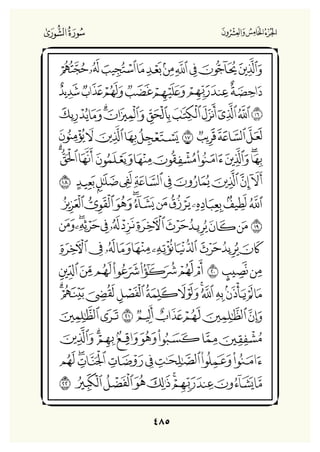 الجزء الخامس والعشرون سورة الشورى
وَالَّذِينَ يُحَاجُّونَ فِي اللَّهِ مِنْ بَعْدِ مَا اسْتُجِيبَ لَهُ حُجَّتُهُمْ
دَاحِضَةٌ عِنْدَ رَبِّهِمْ وَعَلَيْهِمْ غَضَبٌ وَلَهُمْ عَذَابٌ شَدِيدٌ
١٦ اللَّهُ الَّذِي أَنْزَلَ الْكِتَابَ بِالْحَقِّ وَالْمِيزَانَ وَمَا يُدْرِيكَ
لَعَلَّ السَّاعَةَ قَرِيبٌ ١٧ يَسْتَعْجِلُ بِهَا الَّذِينَ لَا يُؤْمِنُونَ
بِهَا وَالَّذِينَ ءَامَنُوا مُشْفِقُونَ مِنْهَا وَيَعْلَمُونَ أَنَّهَا الْحَقُّ
أَلَا إِنَّ الَّذِينَ يُمَارُونَ فِي السَّاعَةِ لَفِي ضَلَالٍ بَعِيدٍ ١٨
اللَّهُ لَطِيفٌ بِعِبَادِهِ يَرْزُقُ مَنْ يَشَاءُ وَهُوَ الْقَوِيُّ الْعَزِيزُ
١٩ مَنْ كَانَ يُرِيدُ حَرْثَ الْآخِرَةِ نَزِدْ لَهُ فِي حَرْثِهِ وَمَنْ
كَانَ يُرِيدُ حَرْثَ الدُّنْيَا نُؤْتِهِ مِنْهَا وَمَا لَهُ فِي الْآخِرَةِ
مِنْ نَصِيبٍ ٢٠ أَمْ لَهُمْ شُرَكَاؤُا شَرَعُوا لَهُمْ مِنَ الدِّينِ
مَا لَمْ يَأْذَنْ بِهِ اللَّهُ وَلَوْلَا كَلِمَةُ الْفَصْلِ لَقُضِيَ بَيْنَهُمْ
وَإِنَّ الظَّالِمِينَ لَهُمْ عَذَابٌ أَلِيمٌ ٢١ تَرَى الظَّالِمِينَ
مُشْفِقِينَ مِمَّا كَسَبُوا وَهُوَ وَاقِعٌ بِهِمْ وَالَّذِينَ
ءَامَنُوا وَعَمِلُوا الصَّالِحَاتِ فِي رَوْضَاتِ الْجَنَّاتِ لَهُمْ
مَا يَشَاءُونَ عِنْدَ رَبِّهِمْ ذَلِكَ هُوَ الْفَضْلُ الْكَبِيرُ ٢٢
٤٨٥